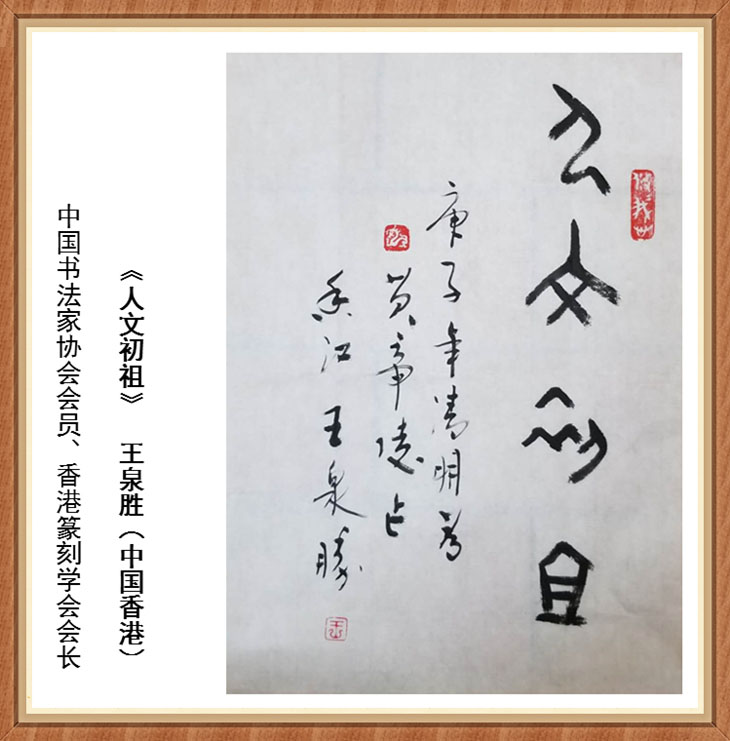 人文初且
庚子年清明为
黄帝陵占
香江 王泉勝
《人文初祖》 王泉胜（中国香港）
中国书法家协会会员、香港篆刻学会会长